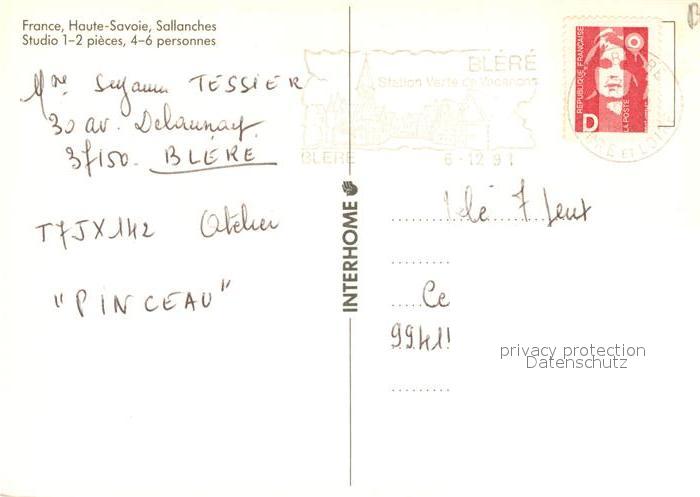 France, Haute-Savoie, Sallanches
Studio 1-2 pièces, 4-6 personnes
Mme Suzanne TESSIER
30 av. Delaunay
37150. BLÉRÉ
T7JX142 Atelier
"PINCEAU"
INTERHOME
BLÉRÉ
Station Verte de Vacances
BLÉRÉ
6-12 91
REPUBLIQUE FRANÇAISE
LA POSTE
D
Télé 7 Jeux
Ce
privacy protection
Datenschutz